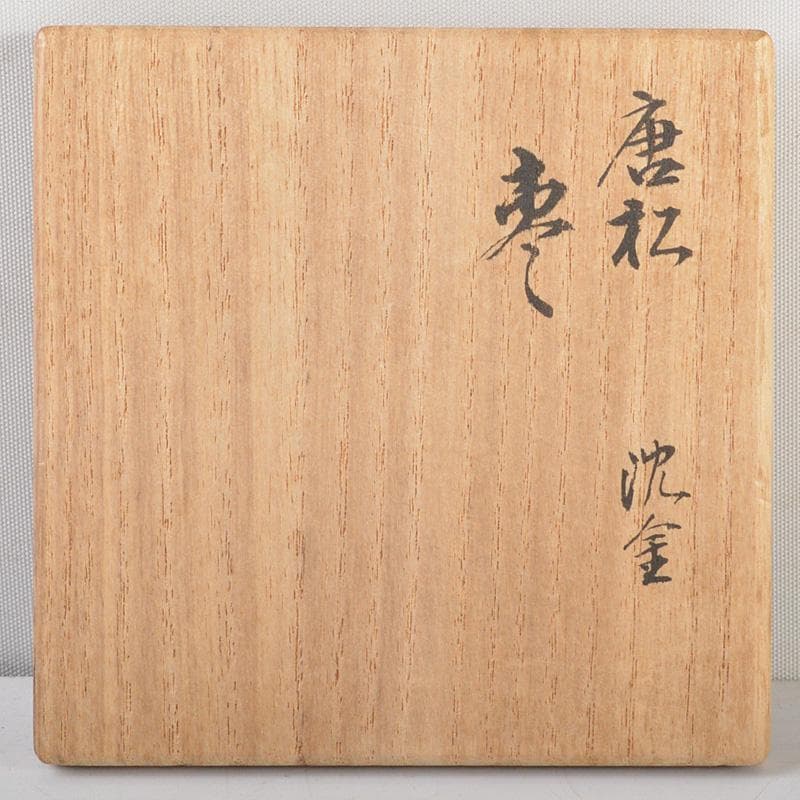 唐松
沈金
棗